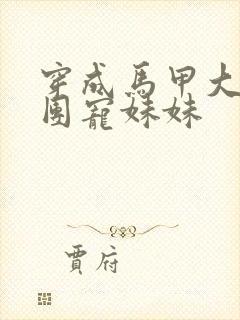 穿成馬甲大
團寵妹妹
賈府